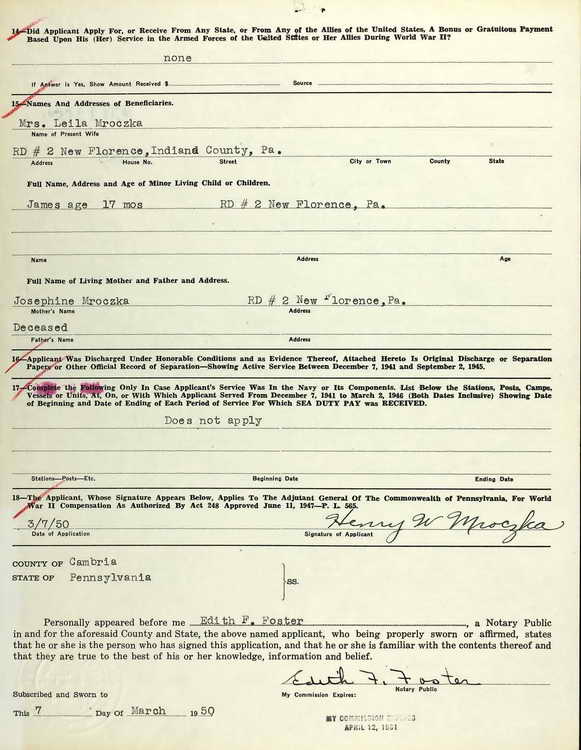 14—Did Applicant Apply For, or Receive From Any State, or From Any of the Allies of the United States, A Bonus or Gratuitous Payment
Based Upon His (Her) Service in the Armed Forces of the United States or Her Allies During World War II?
none
If Answer is Yes, Show Amount Received $ Source
15—Names And Addresses of Beneficiaries.
Mrs. Leila Mroczka
Name of Present Wife
RD # 2 New Florence,Indiana County, Pa.
Address House No. Street City or Town County State
Full Name, Address and Age of Minor Living Child or Children.
James age 17 mos RD # 2 New Florence, Pa.
Name Address Age
Full Name of Living Mother and Father and Address.
Josephine Mroczka RD # 2 New Florence,Pa.
Mother's Name Address
Deceased
Father's Name Address
16—Applicant Was Discharged Under Honorable Conditions and as Evidence Thereof, Attached Hereto Is Original Discharge or Separation
Papers or Other Official Record of Separation—Showing Active Service Between December 7, 1941 and September 2, 1945.
17—Complete the Following Only In Case Applicant's Service Was In the Navy or Its Components. List Below the Stations, Posts, Camps,
Vessels or Units, At, On, or With Which Applicant Served From December 7, 1941 to March 2, 1946 (Both Dates Inclusive) Showing Date
of Beginning and Date of Ending of Each Period of Service For Which SEA DUTY PAY was RECEIVED.
Does not apply
Stations—Posts—Etc. Beginning Date Ending Date
18—The Applicant, Whose Signature Appears Below, Applies To The Adjutant General Of The Commonwealth of Pennsylvania, For World
War II Compensation As Authorized By Act 248 Approved June 11, 1947—P. L. 565.
3/7/50 Henry W Mroczka
Date of Application Signature of Applicant
COUNTY OF Cambria
STATE OF Pennsylvania ss.
Personally appeared before me Edith F. Foster, a Notary Public
in and for the aforesaid County and State, the above named applicant, who being properly sworn or affirmed, states
that he or she is the person who has signed this application, and that he or she is familiar with the contents thereof and
that they are true to the best of his or her knowledge, information and belief.
Edith F. Foster
Subscribed and Sworn to My Commission Expires: Notary Public
This 7 Day Of March 1950
MY COMMISSION EXPIRES
APRIL 12, 1951